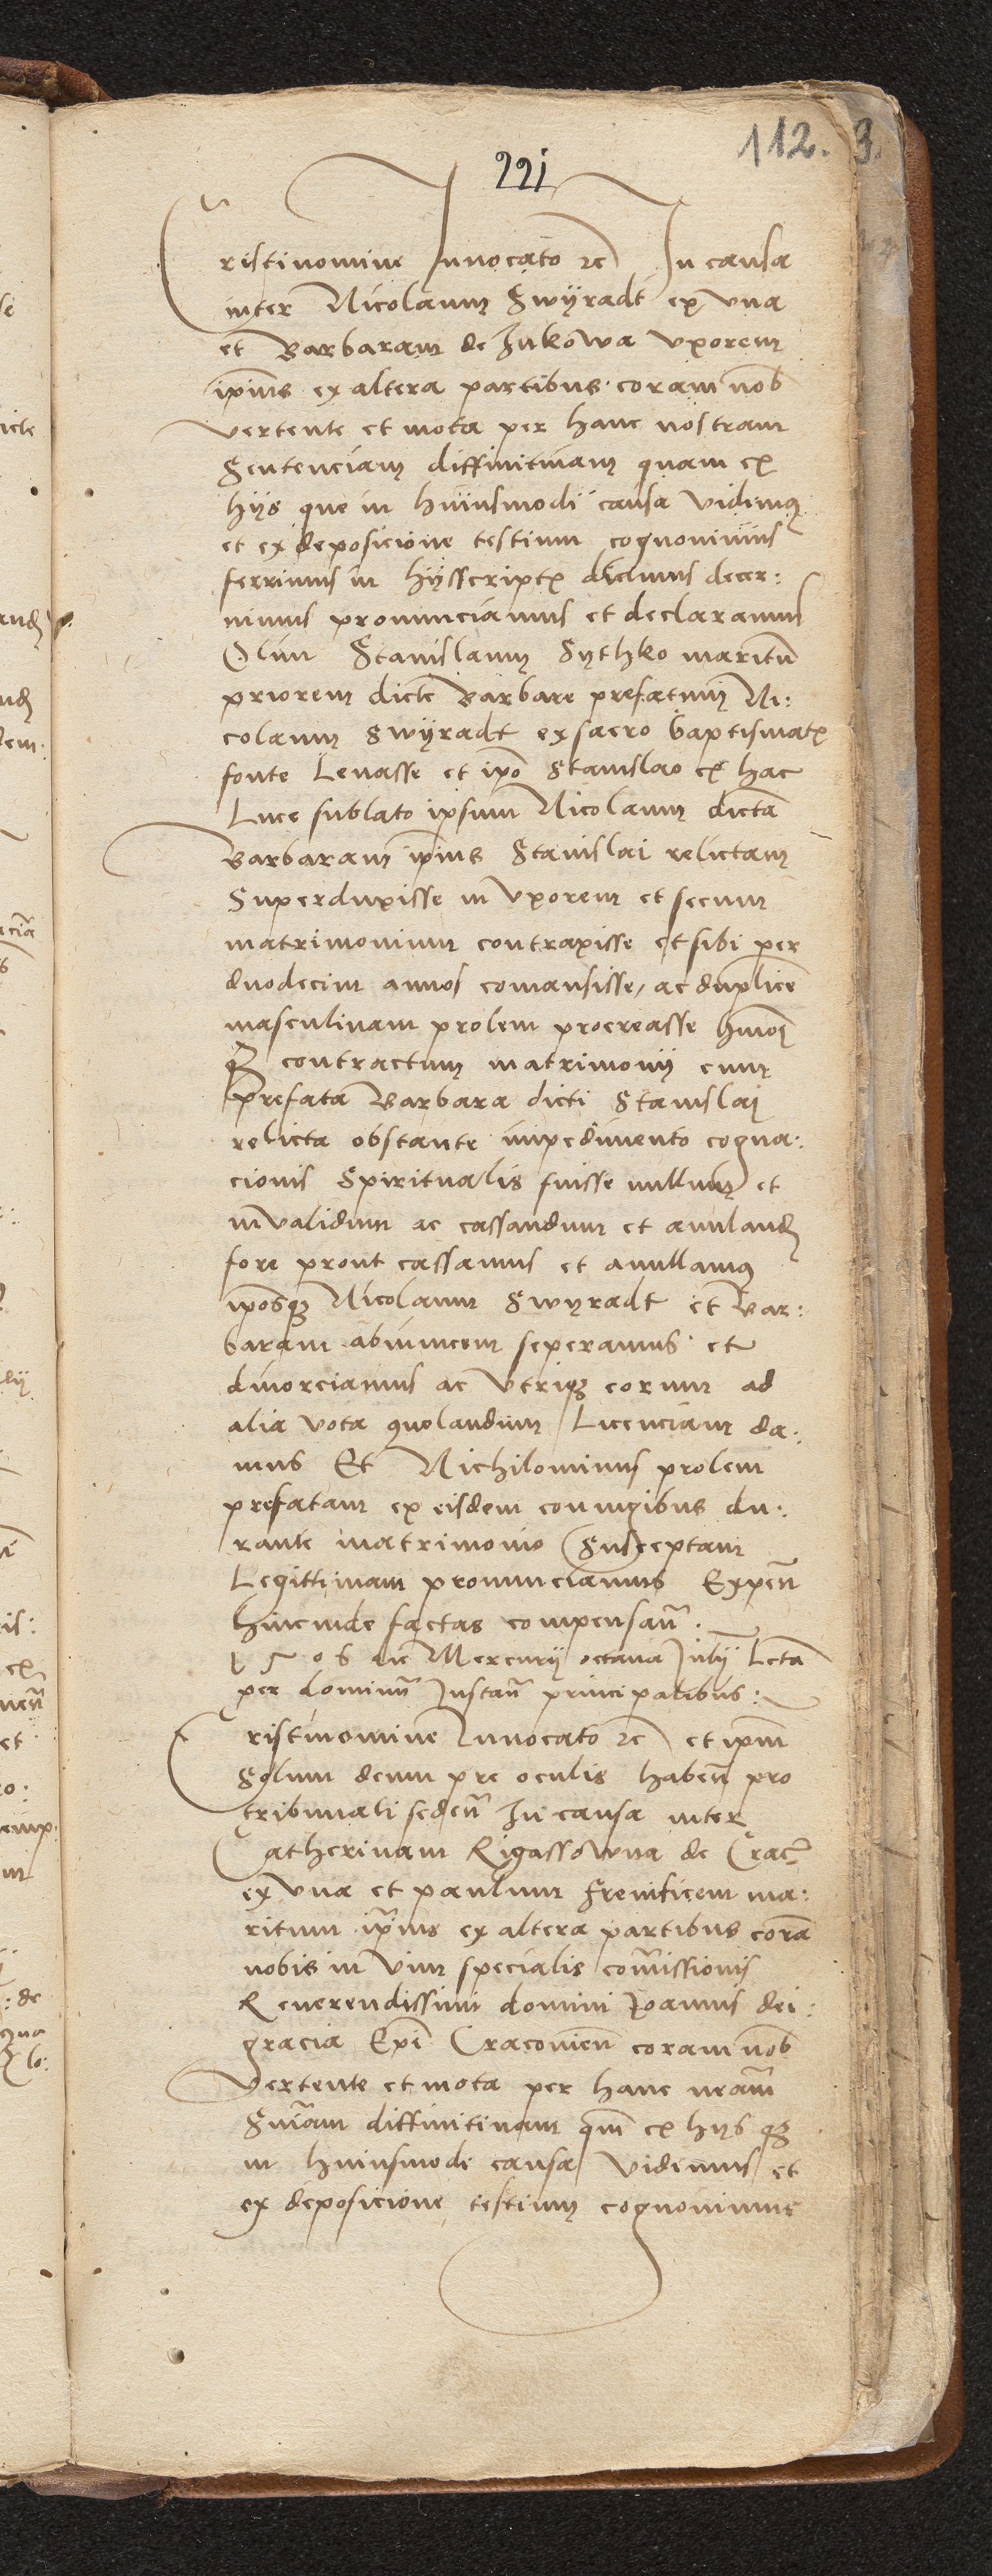 112. 3.
221
Cristinomine Innocato etc In causa
inter Nicolaum Swÿradt ex vna
et Barbaram de Jnkowa vxorem
ip̄ius ex altera partibus coram nob̄
vertente et mota per hanc nostram
Sentenciam diffinitiuam quam ex
hijs que in huiusmodi causa vidimꝰ
et ex deposicione testium cognouimus
ferrimus in hijsscriptꝭ dicimus decer:
nimus pronunciamus et declaramus
Olim Stanislaum Sythko maritū
priorem dicte Barbare prefatum Ni:
colaum Swÿradt ex sacro baptismatꝭ
fonte Leuasse et ip̄o Stanislao ex hac
Luce sublato ipsum Nicolaum dictā
Barbaram ip̄ius Stanislai relictam
Superduxisse in vxorem et secum
matrimonium contraxisse et sibi per
duodecim annos comansisse, ac duplicē
masculinam prolem procreasse hmōi
qꝫ contractum matrimonij cum
prefata Barbara dicti Stanislai
relicta obstante impedimento cogna:
cionis Spiritualis fuisse nullum et
inualidum ac cassandum et anuland
fore prout cassamus et anullamꝰ
ip̄osqꝫ Nicolaum Swyradt et Bar:
baram abinuicem seperamus et
diuorciamus ac vtriqꝫ eorum ad
alia vota quolandum Licenciam da:
mus Et Nichilominus prolem
prefatam ex eisdem coniugibus du:
rante matrimonio Susceptam
Legittimam pronunciamus Expen̄
hincinde factas compensan̄.
1506 die Mercurij octaua Julij Lcta
per dominū Instan̄ principalibus:
Cristinomine Innocato etc et ip̄m
Solum deum pre oculis haben̄ pro
tribunali seden̄ In causa inter
Catherinam Rigassowna de Crac̄
ex vna et paulum frenificem ma:
ritum ip̄ius ex altera partibus corā
nobis in vim specialis com̄issionis
Reuerendissimi domini Joannis dei:
gracia Ep̄i Cracouien̄ coram nob̄
vertente et mota per hanc nr̄am
Sn̄iam diffinitiuam qm̄ ex hijs qꝫ
in huiusmodi causa vidimus et
ex deposicione testium cognouimus